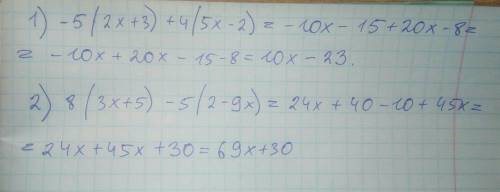 1) -5(2x+3)+4(5x-2)=-10x-15+20x-8=
= -10x+20x-15-8=10x-23.
2) 8(3x+5)-5(2-9x)=24x+40-10+45x=
=24x+45x+30=69x+30